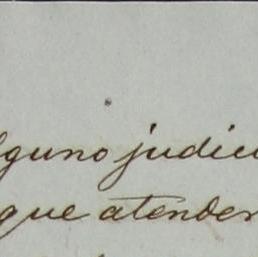 lguno judici
que atender